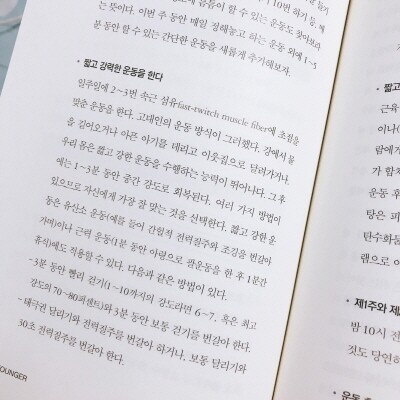 10번 하기 등, 해
틈틈이 할 수 있는 운동도 찾아보라
는 뜻이다. 이번 주 동안 매일 정해놓고 하는 운동 외에 1~5
분 동안 할 수 있는 간단한 운동을 새롭게 추가해보자.
• 짧고 강력한 운동을 한다
일주일에 2~3번 속근 섬유fast-twitch muscle fiber에 초점을
맞춘 운동을 한다. 고대인의 운동 방식이 그러했다. 강에서 물
을 길어오거나 아픈 아기를 데리고 이웃집으로 달려가거나.
우리 몸은 짧고 강한 운동을 수행하는 능력이 뛰어나다. 그 후
에는 1~3분 동안 중간 강도로 회복된다. 여러 가지 방법이
있으므로 자신에게 가장 잘 맞는 것을 선택한다. 짧고 강한 운
동은 유산소 운동(예를 들어 간헐적 전력질주와 조깅을 번갈아
가며)이나 근력 운동(1분 동안 아령으로 팔운동을 한 후 1분간
휴식)에도 적용할 수 있다. 다음과 같은 방법이 있다.
-3분 동안 빨리 걷기(1~10까지의 강도라면 6~7, 혹은 최고
강도의 70~80퍼센트)와 3분 동안 보통 걷기를 번갈아 한다.
-태극권 달리기와 전력질주를 번갈아 하거나, 보통 달리기와
30초 전력질주를 번갈아 한다.
OUNGER
• 짧고
근육
이나(
람에게
가 합치
운동 후
탕은 피
탄수화물
램으로 이
• 제1주와 제
밤 10시 전
것도 당연하
• 운동